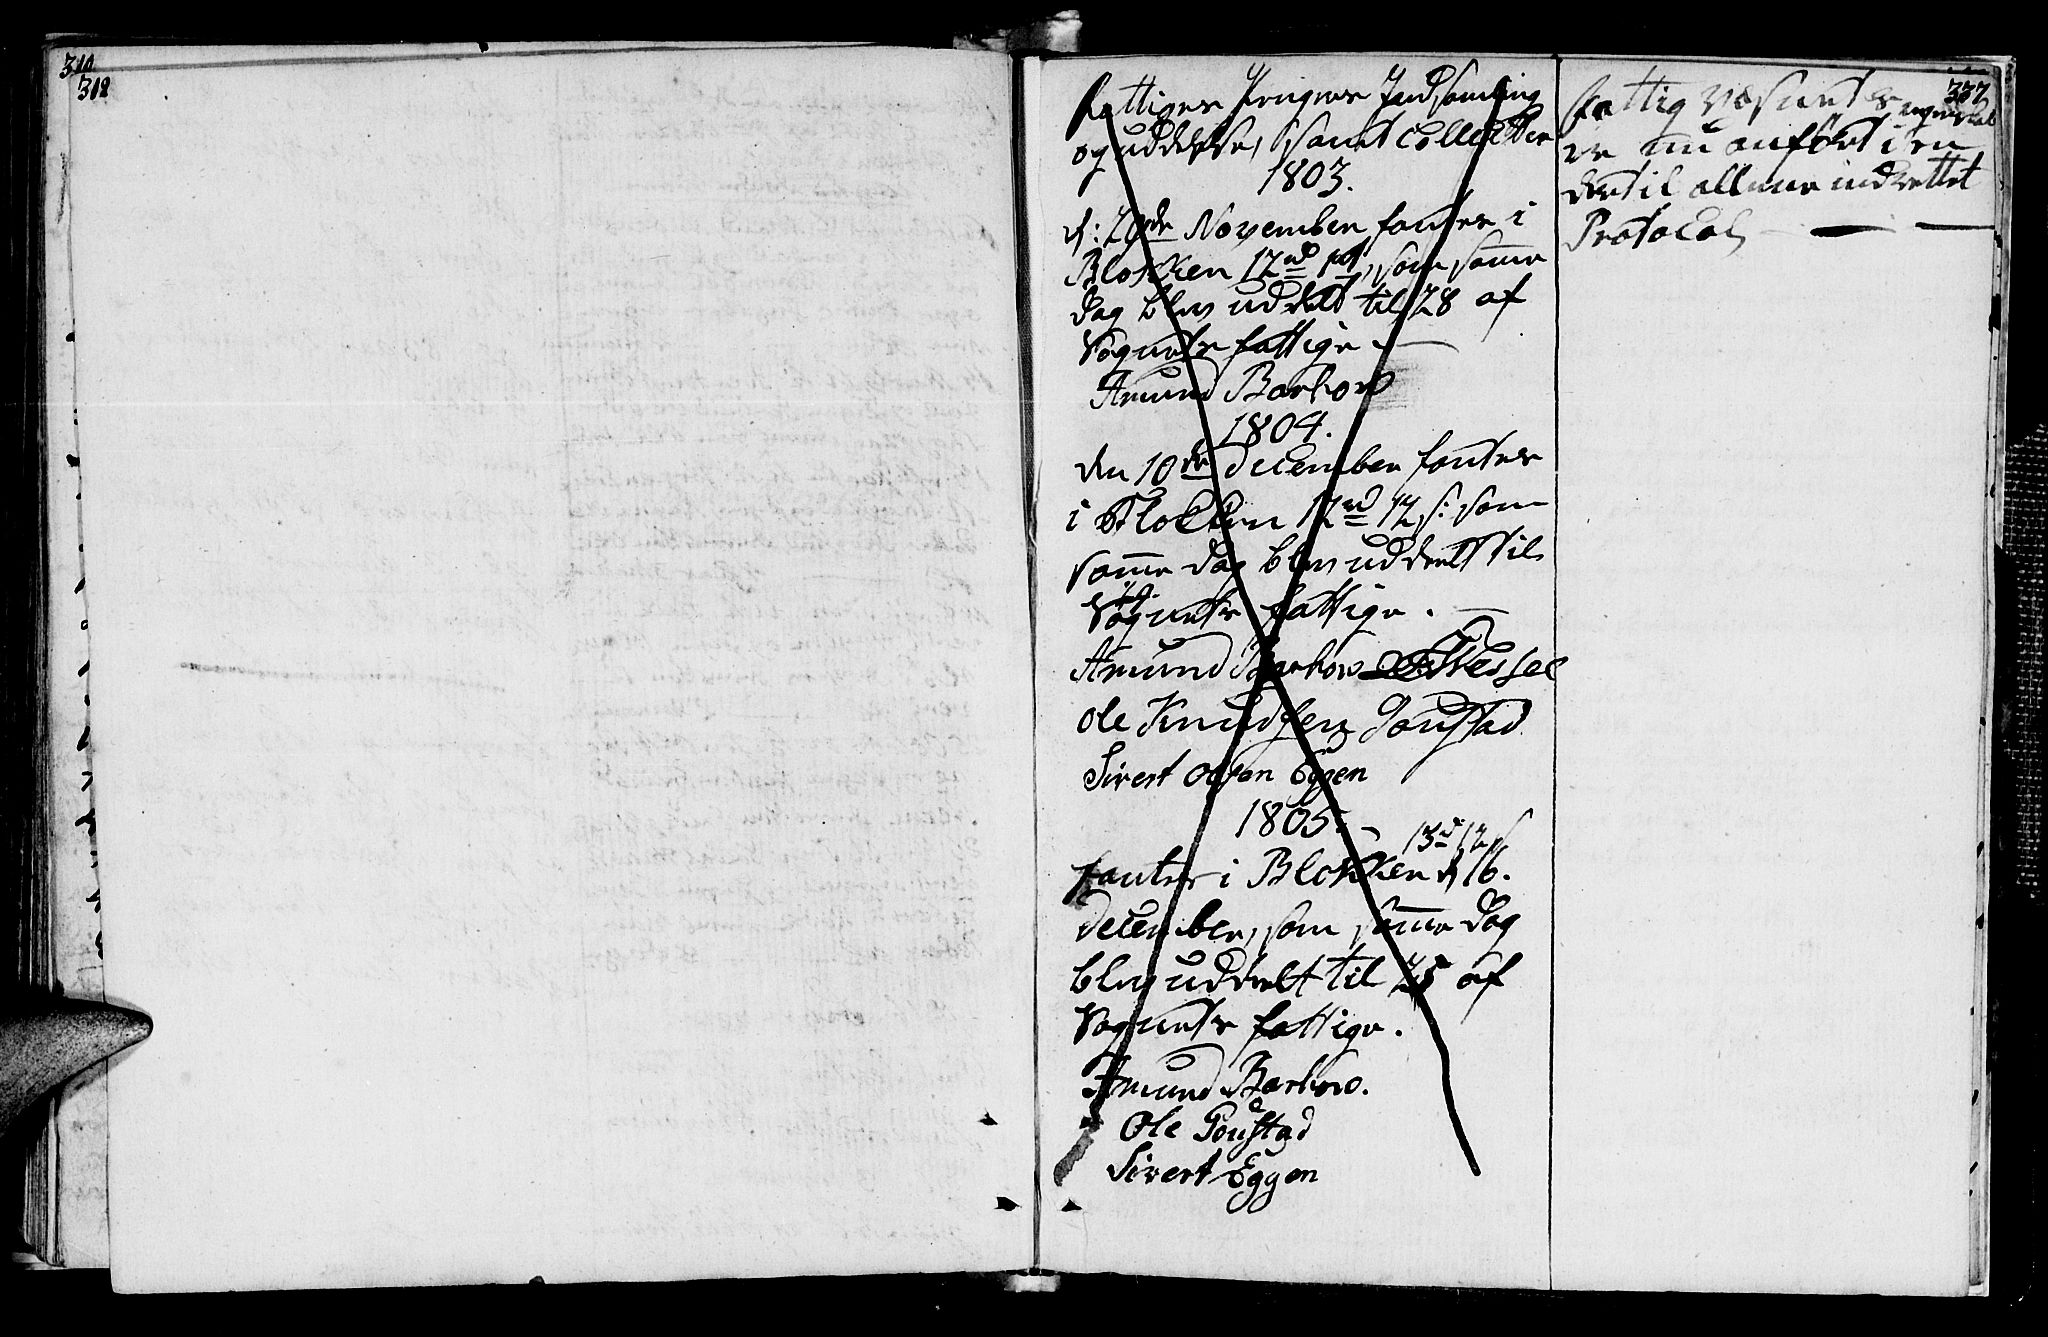 311
312
337
Fattiges Penges Indsamling
og uddelse, samt Collecter
1803.
d: 20de November fantes i
Blokken 12rd som samme
dag blev uddelt til 28 af
Sognets fattige. —
Amund Barhow
1804.
den 10de December fantes
i Blokken 12rd 12 s: som
samme dag blev uddeelt til
Sognets fattige. —
Amund Barhow Wessel
Ole Knudsen Goustad
Sivert Olsen Eggen
1805. –
13d 12 s
fantes i Blokken d 16.
December, som samme dag
blev uddeelt til 25 af
Sognets fattige.
Amund Barhow.
Ole Goustad
Sivert Eggen
Fattig Væsenets Regnskab
er nu anført i en
dertil allene indrettet
Protocol — — —